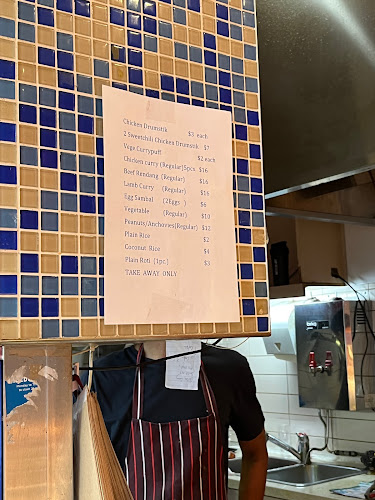 Chicken Drumstik $3 each
2 Sweetchili Chicken Drumstik $7
Vege Currypuff $2 each
Chicken curry (Regular)5pcs $16
Beef Rendang (Regular) $16
Lamb Curry (Regular) $16
Egg Sambal (2Eggs ) $6
Vegetable (Regular) $10
Peanuts/Anchovies(Regular) $12
Plain Rice $2
Coconut Rice $4
Plain Roti (1pc) $3
TAKE AWAY ONLY